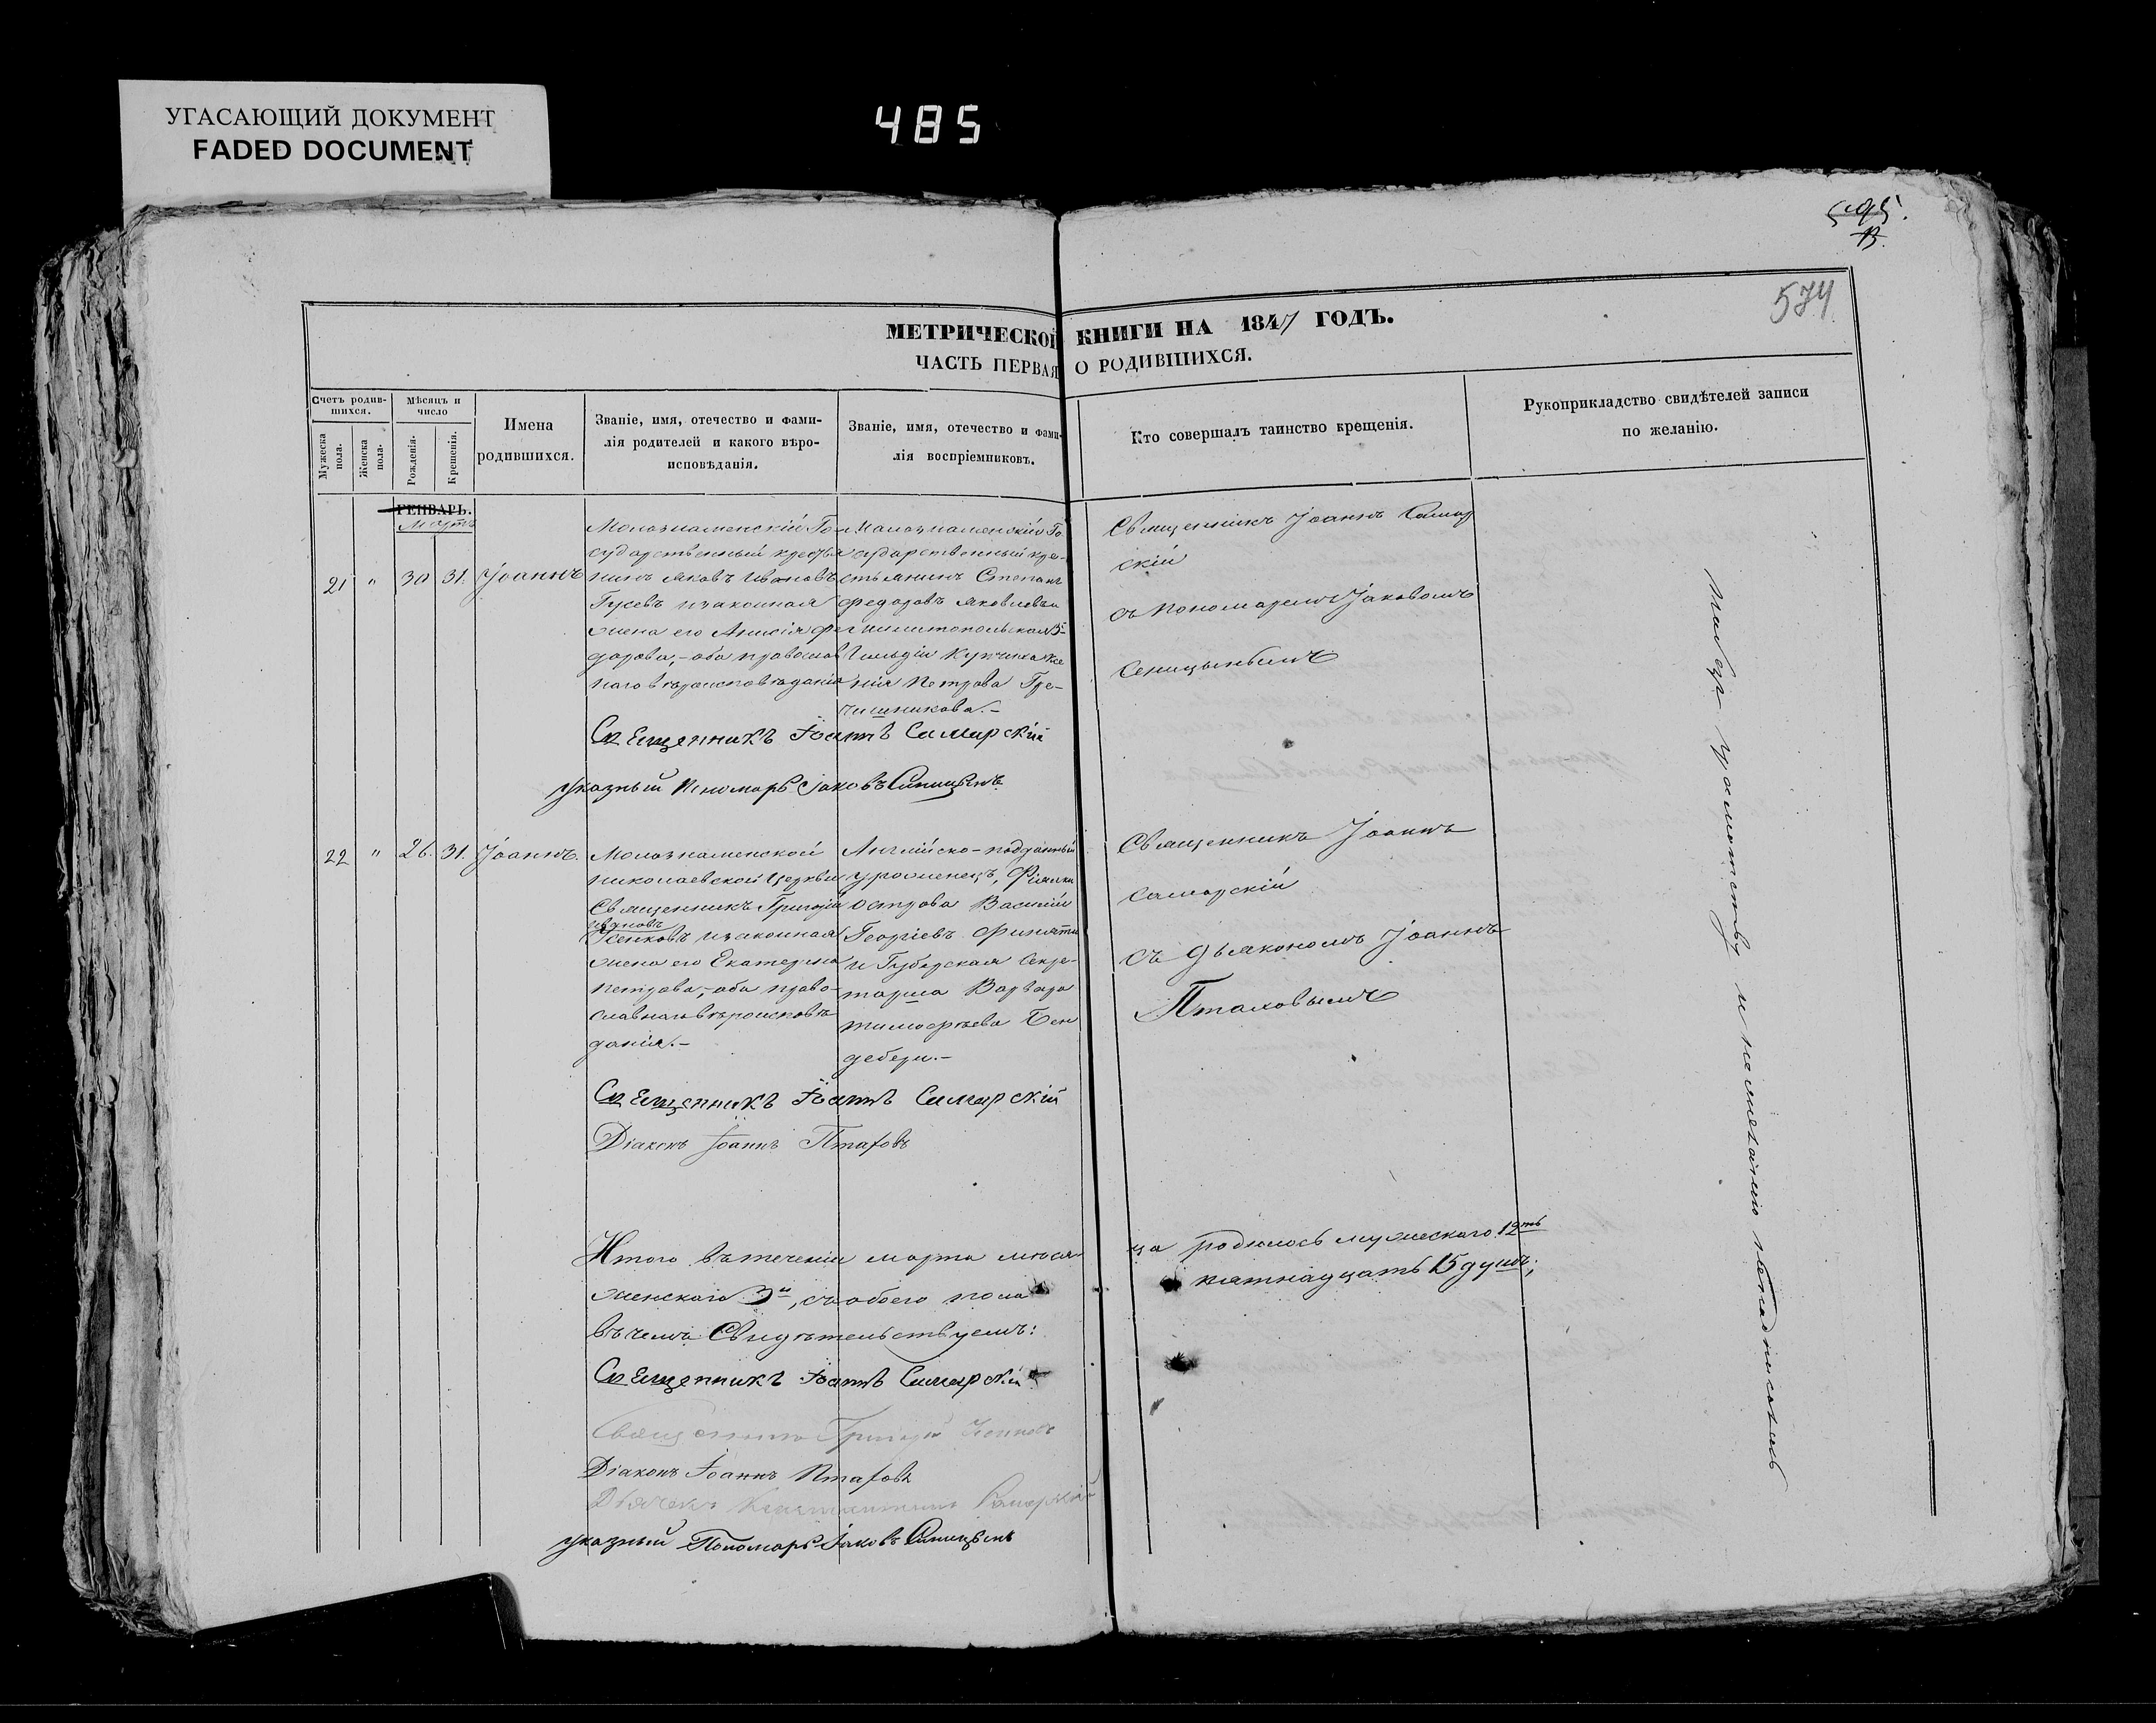 УГАСАЮЩИЙ ДОКУМЕНТ
FADED DOCUMENT
485
574
МЕТРИЧЕСКОЙ КНИГИ НА 1847 ГОДЪ.
ЧАСТЬ ПЕРВАЯ О РОДИВШИХСЯ.
Счетъ родив-
шихся.
Мужеска
пола.
Женска
пола.
Мѣсяцъ и
число
Рожденія.
Крещенія.
Имена
родившихся.
Званіе, имя, отечество и фами-
лія родителей и какого вѣро-
исповѣданія.
Званіе, имя, отечество и фами-
лія воспріемниковъ.
Кто совершалъ таинство крещенія.
Рукоприкладство свидѣтелей записи
по желанію.
ГЕНВАРЬ.
Мартъ
21 " 30 31. Іоаннъ
Молознаменскій Го-
сударственный кресть
нинъ Яковъ Ивановъ
Гусевъ и законная
жена его Анисія Фе
дорова, - оба православ
наго вѣроисповѣданія
Малознаменскій Го
сударственный кре-
стьянинъ Степанъ
Федоровъ Яковлевъ и
Мелитопольская 3й
Гильдіи Купчиха Ксе
нія Петрова Гре-
чишникова. -
Священникъ Іоаннъ Самар
скій
съ Пономаремъ Іаковомъ
Синицынымъ
Священникъ Іоаннъ Самарскій
указный Пономарь Іаковъ Синицынъ
22 " 26. 31. Іоаннъ.
Молознаменской
Николаевской Церкви
Священникъ Григорій
Ивановъ
Ценковъ и законная
жена его Екатерина
Петрова, - оба право-
славнаго вѣроисповѣ
данія. -
Англійско-подданный
уроженецъ,
острова Василій
Георгіевъ
и Губернская Секре-
тарша Варвара
Тимофѣева Бен
дебери. -
Священникъ Іоаннъ
Самарскій
съ Дьякономъ Іоанномъ
Птаховымъ
Священникъ Іоаннъ Самарскій
Діаконъ Іоаннъ Птаховъ
Итого въ теченіи марта мѣся-ца родилось мужескаго 12ть
женскаго 3и, а обоего пола пятнадцать 15 душъ;
въ чемъ Свидѣтельствуемъ:
Священникъ Іоаннъ Самарскій
Священникъ Григорій Ценковъ
Діаконъ Іоаннъ Птаховъ
Дьячекъ Константинъ Самарскій
указный Пономарь Іаковъ Синицынъ